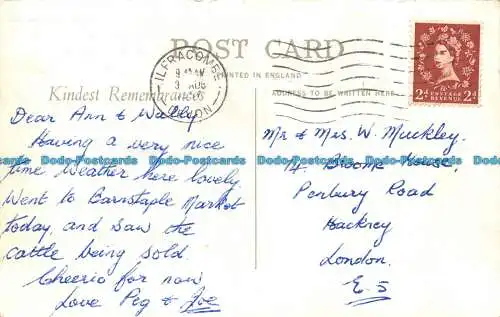 POST CARD
PRINTED IN ENGLAND
Kindest Remembrances
ADDRESS TO BE WRITTEN HERE
ILFRACOMBE
3 AUG
DEVON
2d POSTAGE REVENUE 2d
Dear Ann & Wally
Having a very nice
time weather here lovely.
Went to Barnstaple Market
today, and saw the
cattle being sold.
Cheerio for now
Love Peg & Joe
Mr & Mrs. W. Muckley.
House,
Penbury Road
Hackney
London.
E.5
Dodo-Postcards Dodo-Postcards Dodo-Postcards Dodo-Postcards Dodo-Postcards